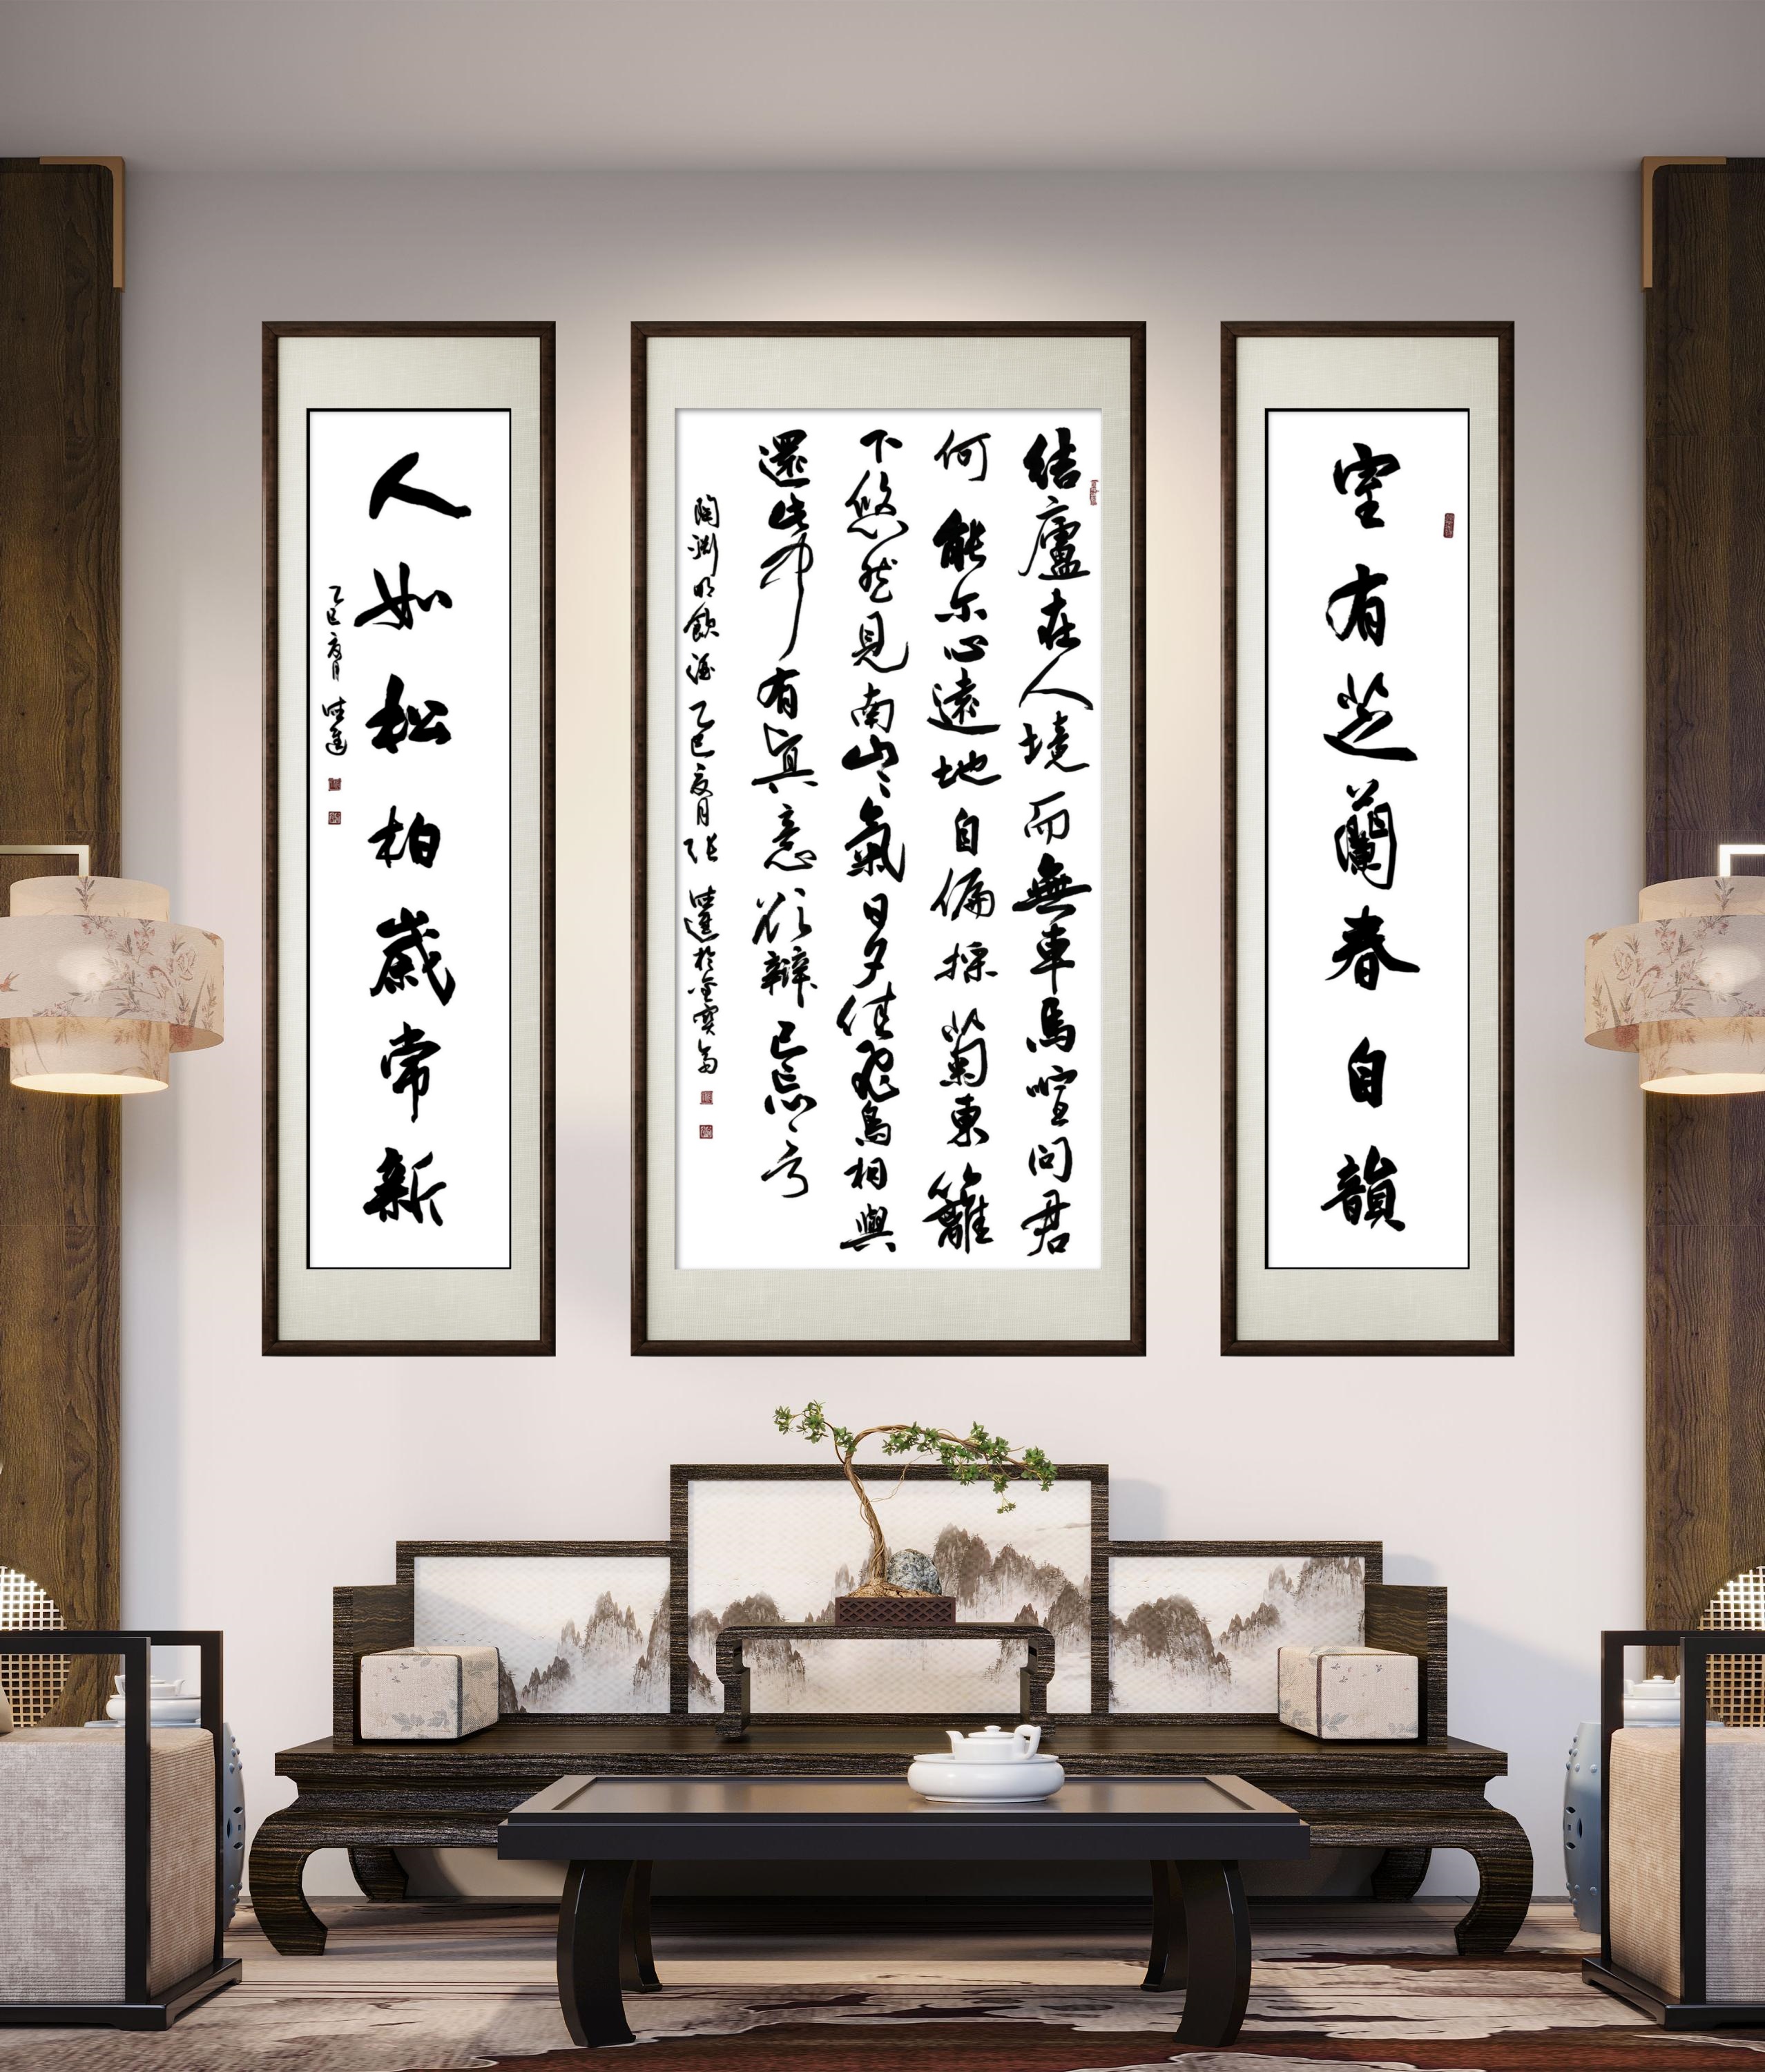 室有芝蘭春自韻
結廬在人境而無車馬喧問君
何能尔心遠地自偏採菊東籬
下悠然見南山〻氣日夕佳飛鳥相與
還此中有真意欲辯已忘言
陶淵明飲酒 乙巳夏月 張
人如松柏歲常新
乙巳夏月